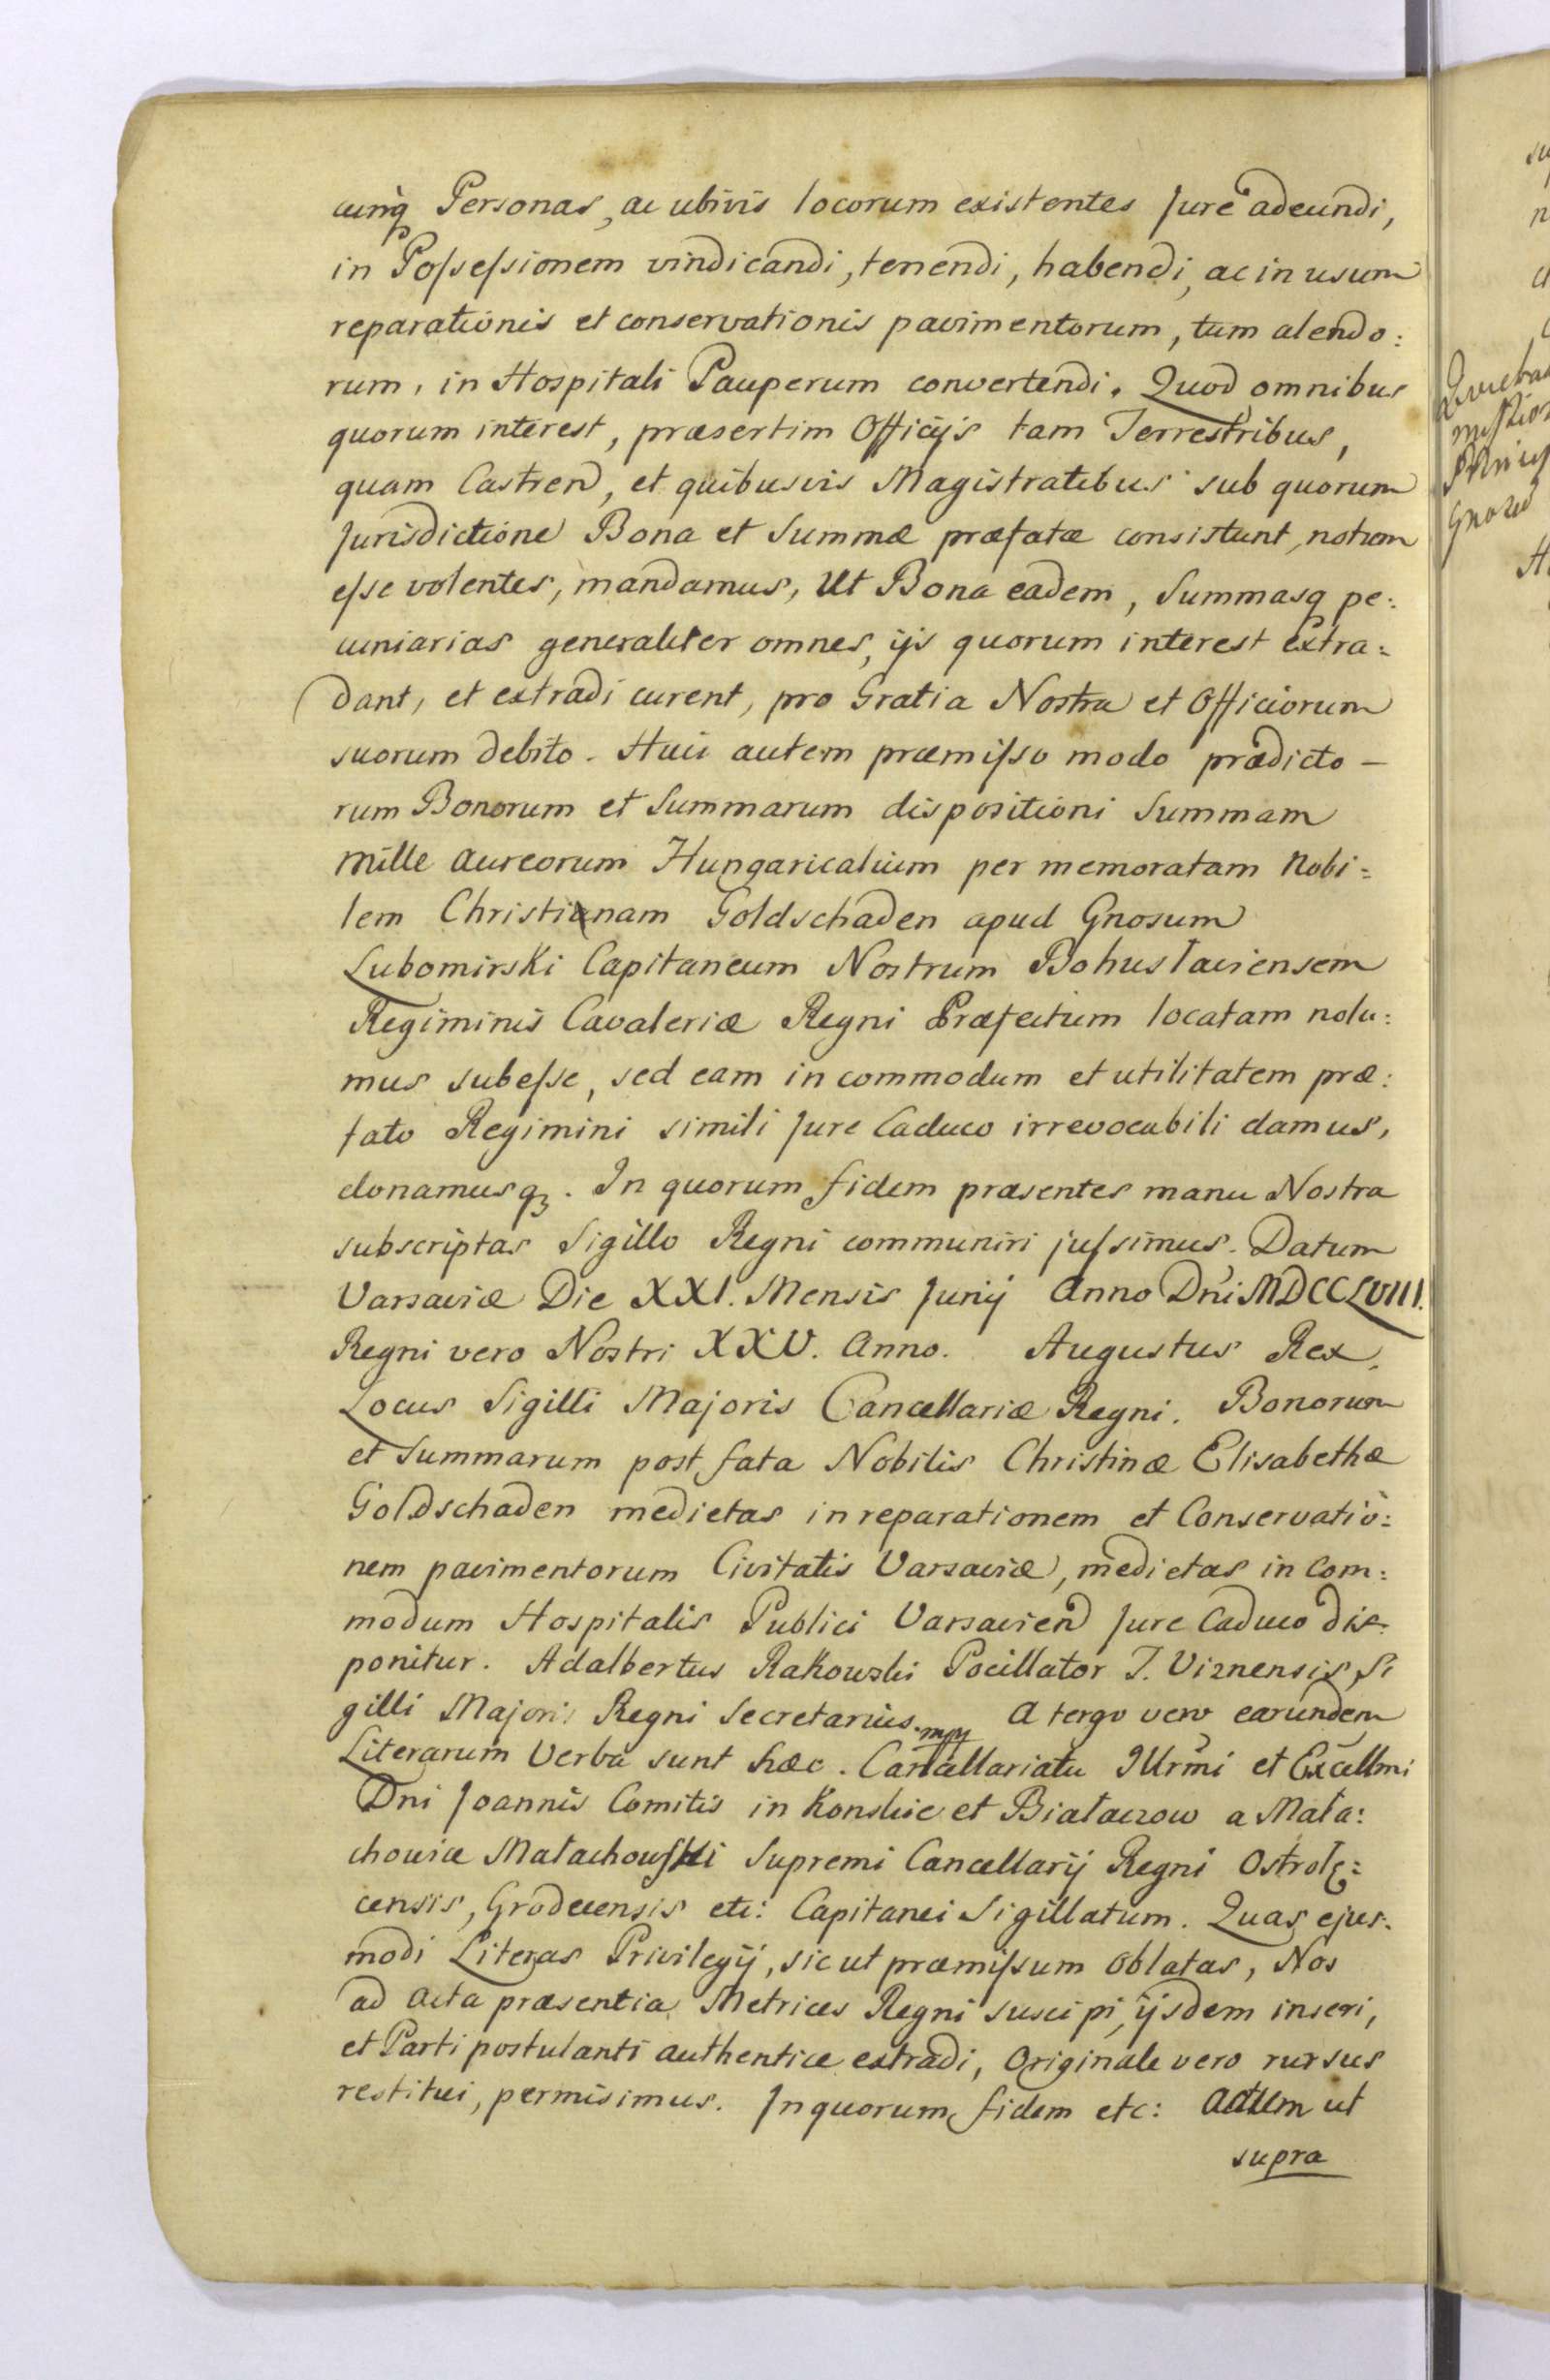 cunq̀ Personas, ac ubivis locorum existentes Jure adeundi,
in Poſseſsionem vindicandi, tenendi, habendi, ac in usum
reparationis et conservationis pavimentorum, tum alendo:
rum, in Hospitali Pauperum convertendi. Quod omnibus
quorum interest, præsertim Officijs tam Terrestribus,
quam Castren, et quibusvis Magistratibus sub quorum
Jurisdictione Bona et Summæ præfatæ consistunt, notum
eſse volentes, mandamus, Ut Bona eadem, Summasq pe:
cuniarias generaliter omnes, ijs quorum interest extra:
dant, et extradi curent, pro Gratia Nostra et Officiorum
suorum debito. Huic autem præmiſso modo prædicto –
rum Bonorum et Summarum dispositioni Summam
Mille Aureorum Hungaricalium per memoratam Nobi:
lem Christianam Goldschaden apud Gnosum
Lubomirski Capitaneum Nostrum Bohuslaviensem
Regiminis Cavaleriæ Regni Præfectum locatam nolu:
mus subeſse, sed eam in commodum et utilitatem præ:
fato Regimini simili Jure Caduco irrevocabili damus,
donamusq3. In quorum fidem præsentes manu Nostra
subscriptas Sigillo Regni communiri juſsimus. Datum
Varsaviæ Die XXI. Mensis Junij Anno Dni MDCCLVIII.
Regni vero Nostri XXV. Anno. Augustus Rex,
Locus Sigilli Majoris Cancellariæ Regni. Bonorum
et Summarum post fata Nobilis Christinæ Elisabethæ
Goldschaden medietas in reparationem et Conservatio:
nem pavimentorum Civitatis Varsaviæ, medietas in Com:
modum Hospitalis Publici Varsavien Jure Caduco dis:
ponitur. Adalbertus Rakowski Pocillator T. Viznensis, Si
gilli Majoris Regni Secretarius. mpp A tergo vero earundem
Literarum Verba sunt hæc. Cancellariatu Illrmi et Excellmi
Dni Joannis Comitis in Konskie et Białaczow a Mała:
chowice Małachowſki Supremi Cancellarij Regni Ostrolę:
censis, Grodecensis etc: Capitanei Sigillatum. Quas ejus:
modi Literas Privilegij, sic ut præmiſsum oblatas, Nos
ad Acta præsentia Metrices Regni suscipi, ijsdem inseri,
et Parti postulanti authentice extradi, Originale vero rursus
restitui, permisimus. In quorum fidem etc: Actum ut
supra